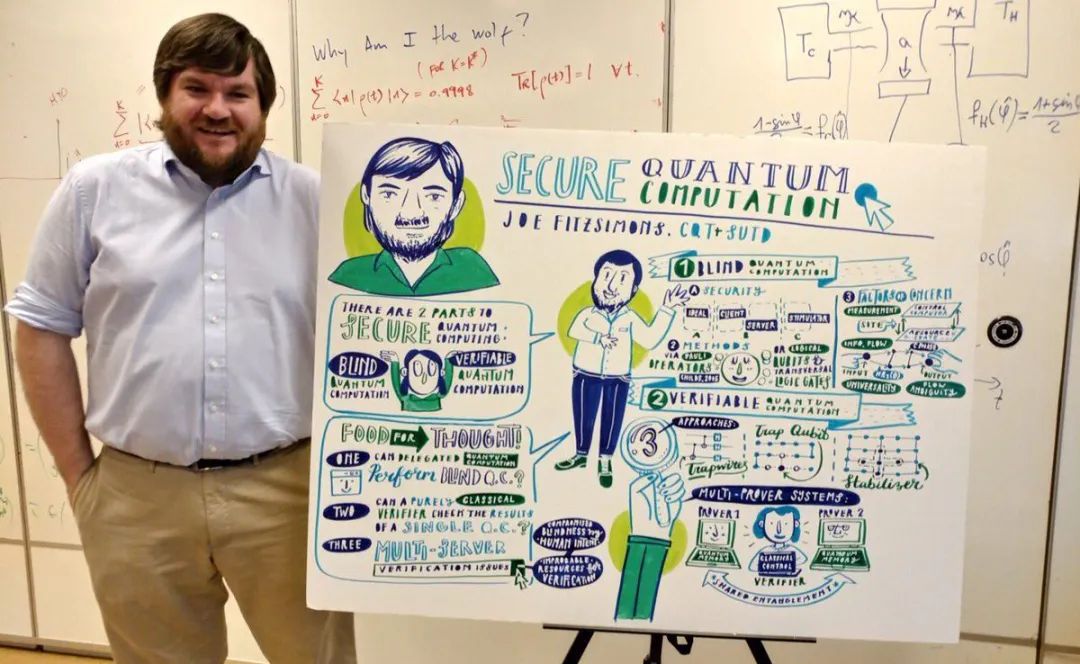 Why Am I the wolf?
(for K=K*)
Tr[ρ(t)] = 1 ∀t.
= 0.9998
T_C
a
T_H
f_H(φ̂) = 1+sinφ̂ / 2
SECURE QUANTUM
COMPUTATION
JOE FITZSIMONS, CQT + SUTD
THERE ARE 2 PARTS TO
SECURE QUANTUM
COMPUTING.
BLIND
QUANTUM
COMPUTATION
VERIFIABLE
QUANTUM
COMPUTATION
FOOD FOR THOUGHT!
ONE
CAN DELEGATED QUANTUM
COMPUTATION
Perform BLIND Q.C.?
TWO
CAN A PURELY CLASSICAL
VERIFIER CHECK THE RESULTS
OF A SINGLE Q.C.?
THREE
MULTI-SERVER
VERIFICATION ISSUES
COMPROMISED
BLINDNESS by
HUMAN INTENT
IMPROBABLE
RESOURCES for
VERIFICATION
1 BLIND QUANTUM
COMPUTATION
A SECURITY
IDEAL
CLIENT
SERVER
SIMULATOR
2 METHODS
VIA PAULI
OPERATORS
CHILDS, 2005
OR LOGICAL
QUBITS &
TRANSVERSAL
LOGIC GATES
3 FACTORS OF CONCERN
MEASUREMENT
CONTROL
COMPUTER
SITE
RESOURCE
INFO. FLOW
INPUT
OUTPUT
UNIVERSALITY
FLOW
AMBIGUITY
2 VERIFIABLE QUANTUM
COMPUTATION
3
APPROACHES:
Trapwires
Trap Qubit
Stabilizer
MULTI-PROVER SYSTEMS:
PROVER 1
QUANTUM
MEMORY
CLASSICAL
CONTROL
VERIFIER
PROVER 2
QUANTUM
MEMORY
SHARED ENTANGLEMENT